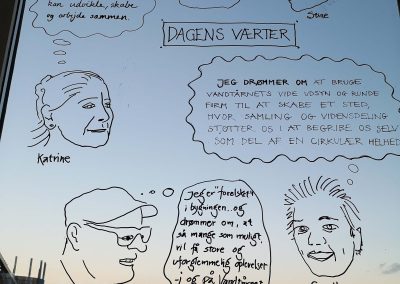 kan udvikle, skabe
og arbejde sammen.
Stine
DAGENS VÆRTER
JEG DRØMMER OM AT BRUGE
VANDTÅRNETS VIDE UDSYN OG RUNDE
FORM TIL AT SKABE ET STED,
HVOR SAMLING OG VIDENSDELING
STØTTER OS I AT BEGRIBE OS SELV
SOM DEL AF EN CIRKULÆR HELHED
Katrine
Jeg er "forelsket"
i bygningen.. og
drømmer om, at
så mange som muligt
vil få store og
uforglemmelig oplevelser
i og på Vandtårnet